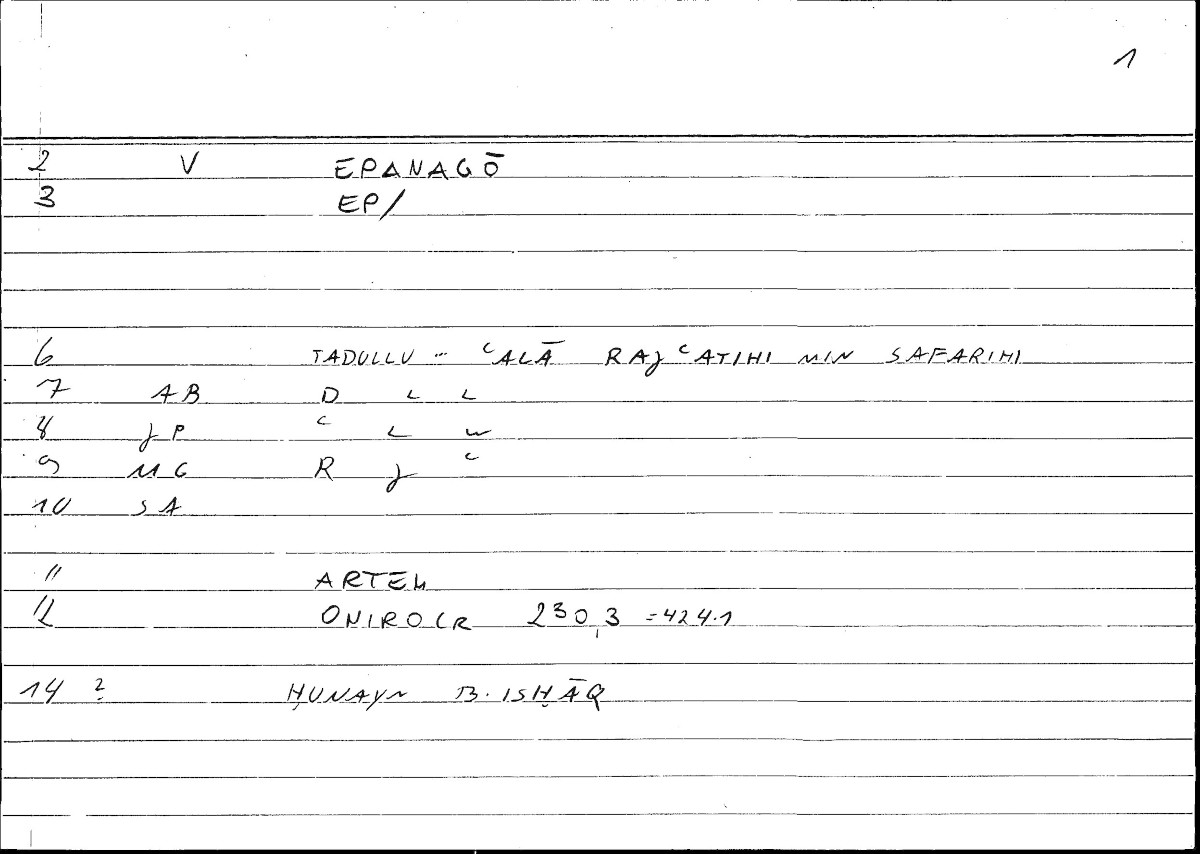 1
2 V EPANAGŌ
3 EP/
6 TADULLU - ʿALĀ RAJʿATIHI MIN SAFARIHI
7 AB D L L
8 JP ʿ L W
9 MG R J ʿ
10 SA
11 ARTEM
12 ONIROCR 230,3 = 424.1
14 ? ḤUNAYN B. ISḤĀQ